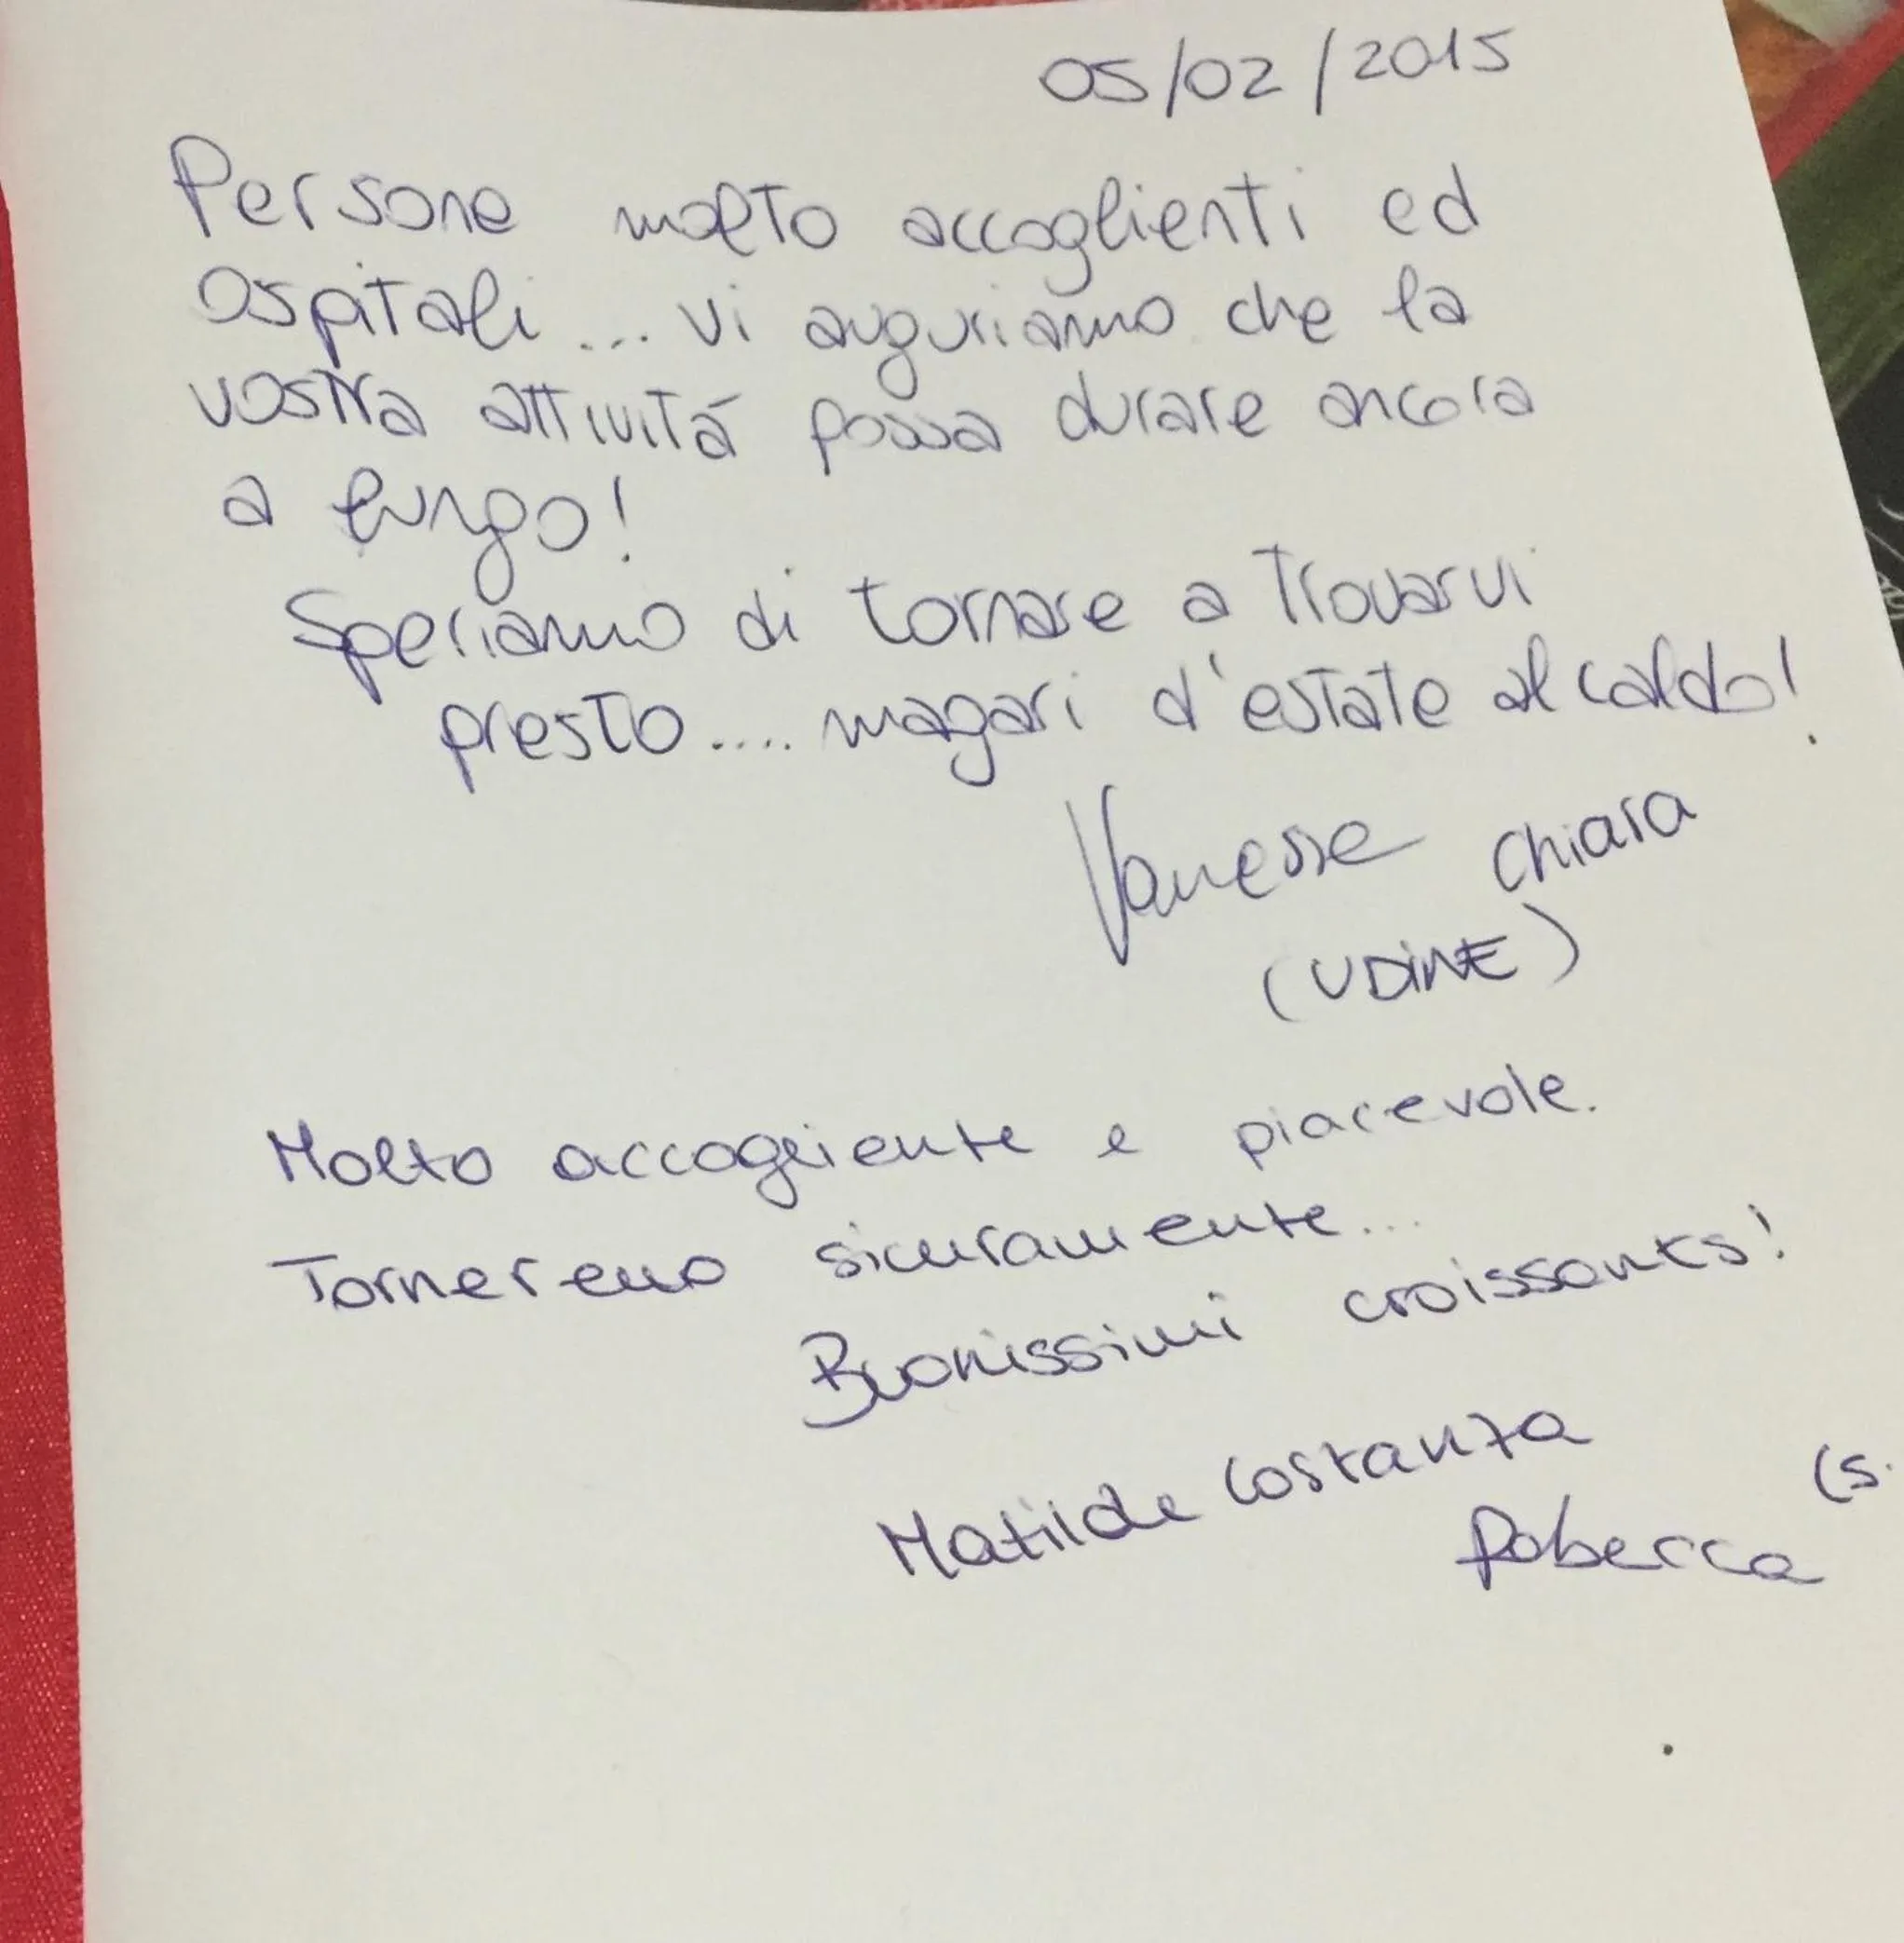 05/02/2015
Persone molto accoglienti ed
ospitali... vi auguriamo che la
vostra attivitá possa durare ancora
a lungo!
Speriamo di tornare a trovarvi
presto.... magari d'estate al caldo!
Vanessa Chiara
(UDINE)
Molto accogliente e piacevole.
Torneremo sicuramente...
Buonissimi croissants!
Matilde Costanza
(S.